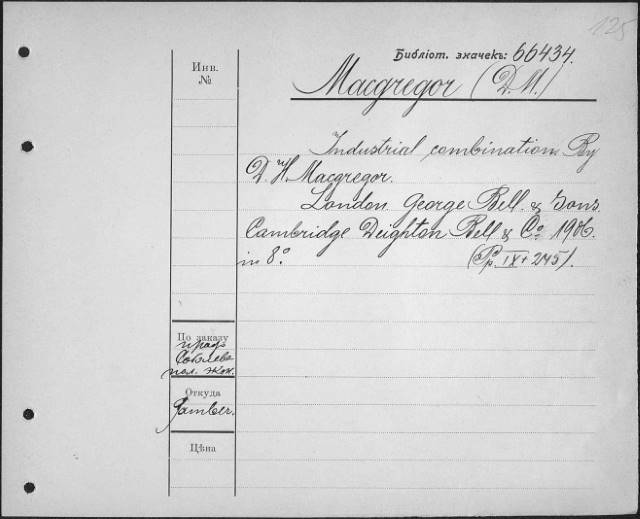 125
Библіот. значекъ: 66434.
Инв.
№
Macgregor (D.H.)
Industrial combination. By
D. H. Macgregor.
London George Bell & Sons.
Cambridge Deighton Bell & Cº 1906.
in 8º. (Pp. IX+245).
По заказу
проф.
Соболева
пол. экон.
Откуда
Gamber.
Цѣна